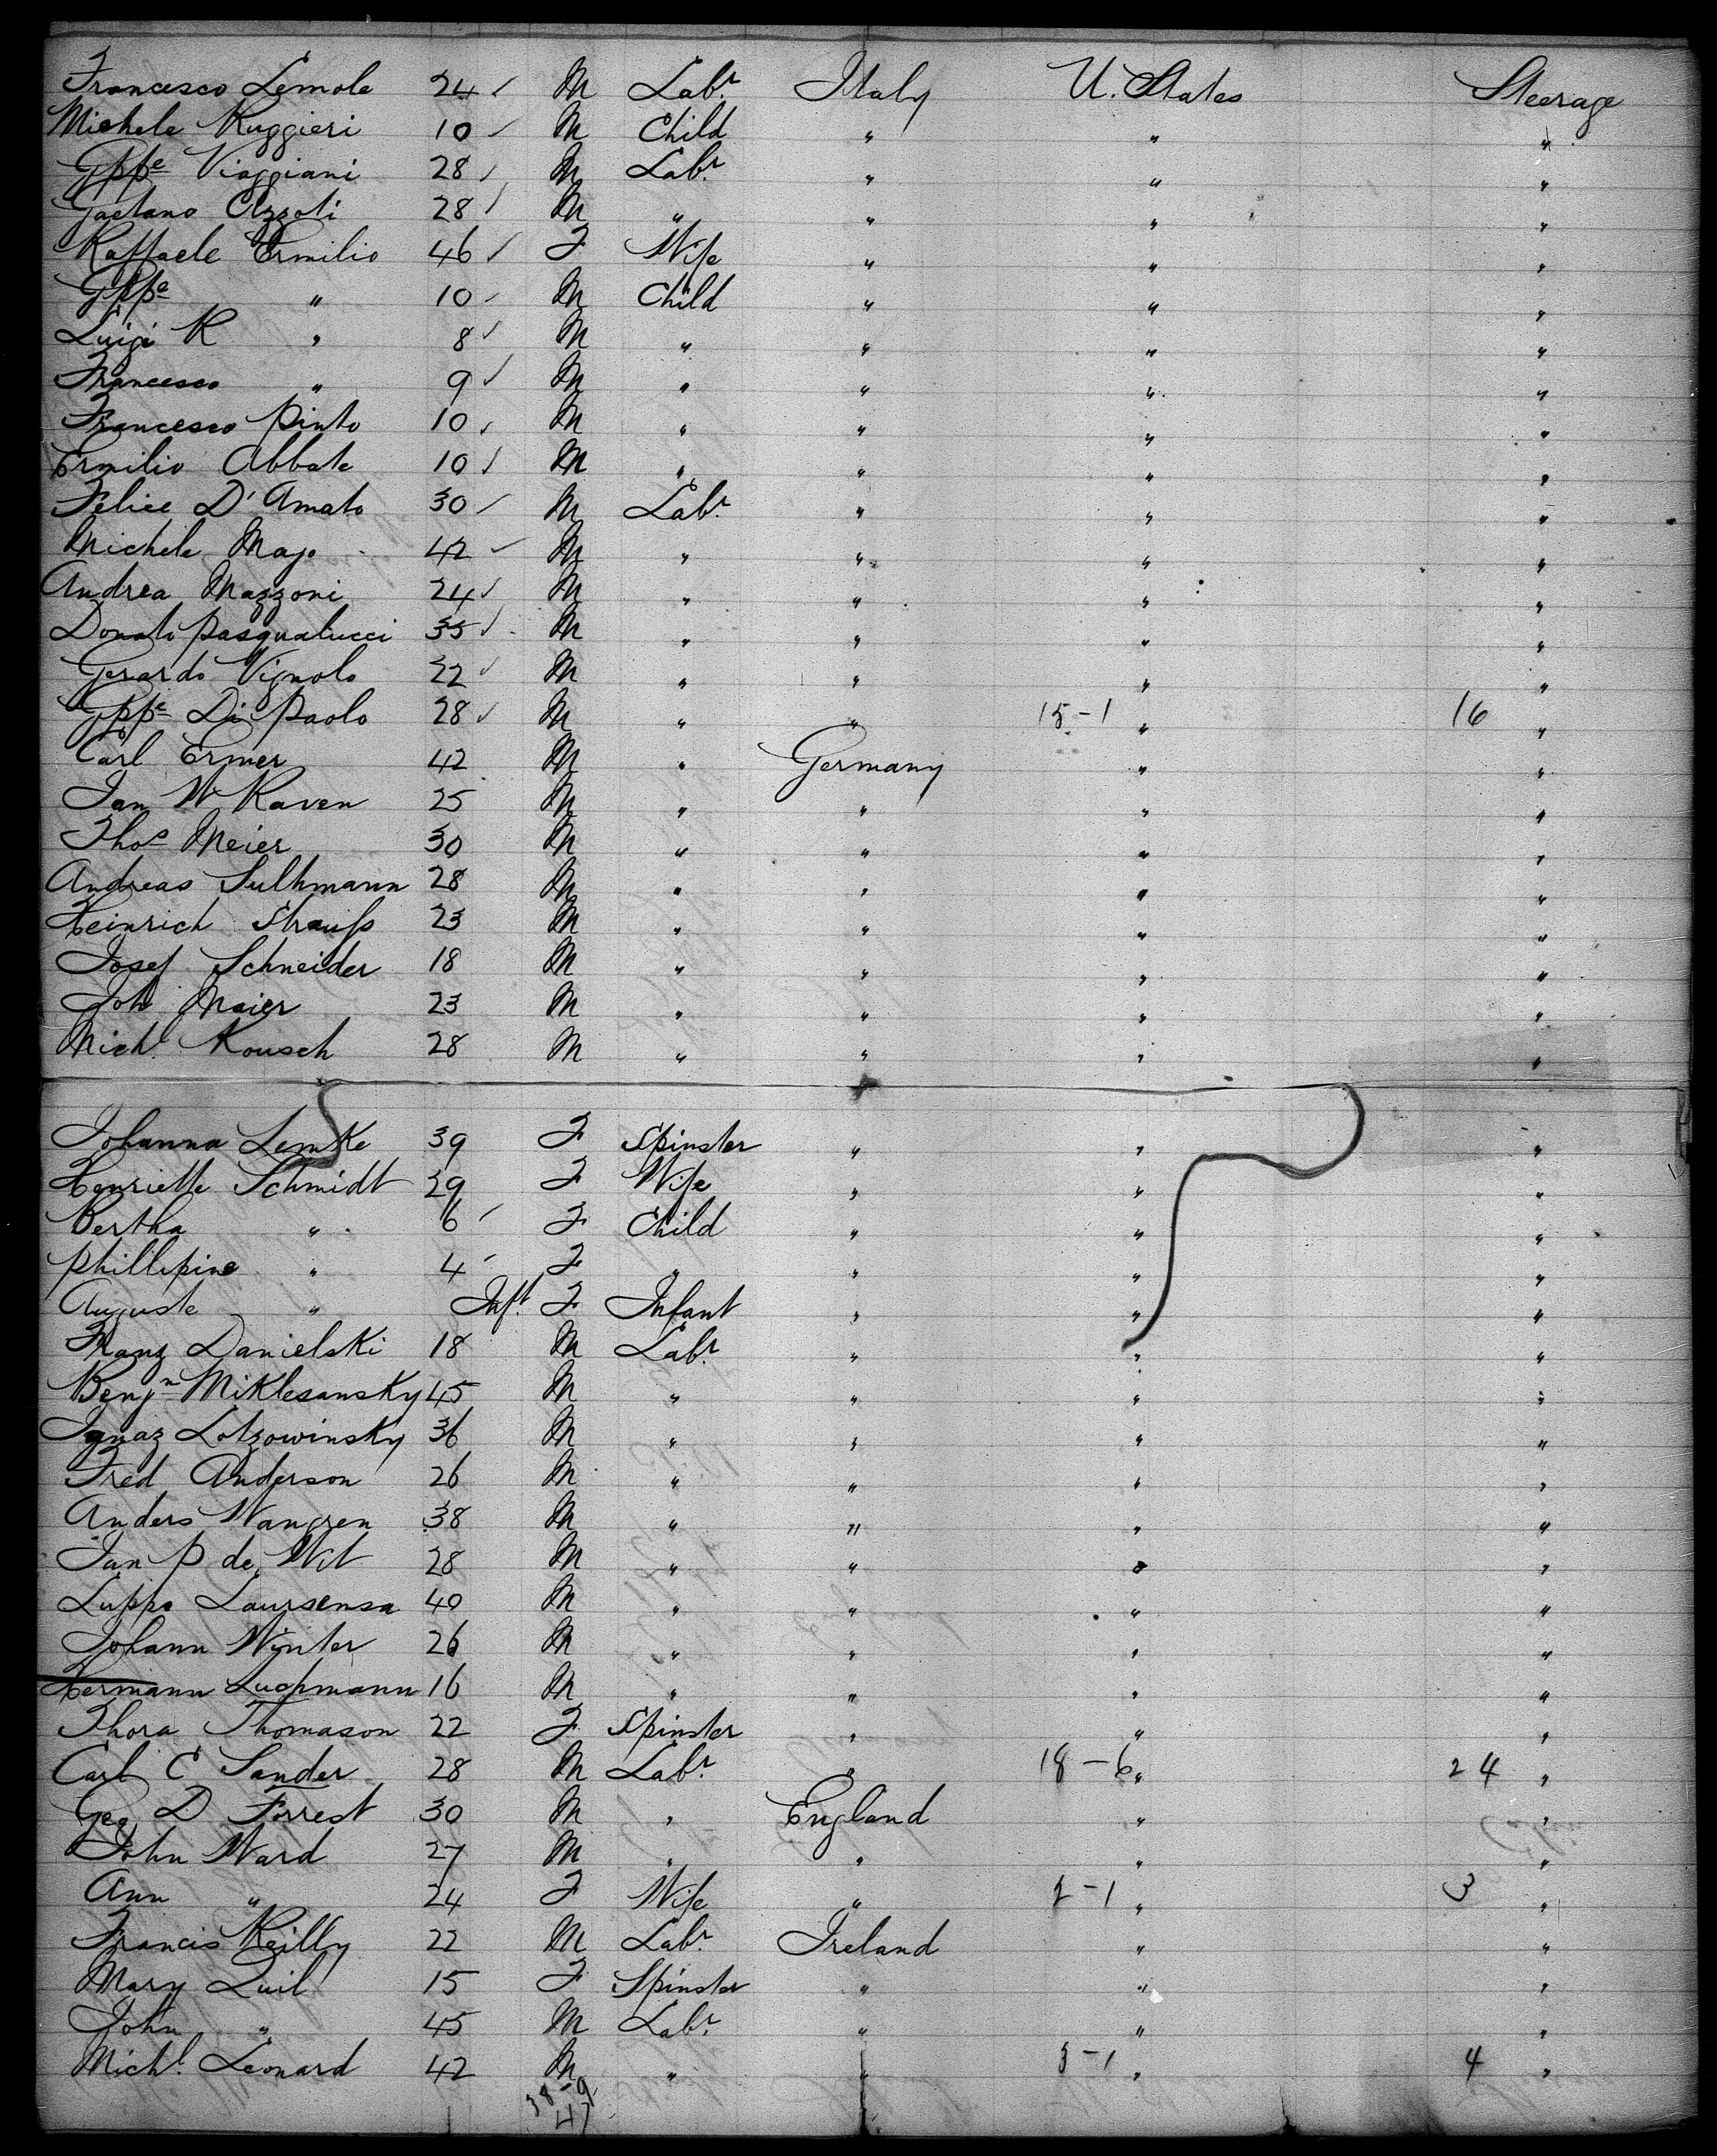 Francesco Lemole 24 ✓ M Labr. Italy U. States Steerage
Michele Ruggieri 10 ✓ M Child " " "
Gppe Viaggiani 28 ✓ M Labr. " " "
Gaetano Azzoli 28 ✓ M " " " "
Raffaele Ermilio 46 ✓ F Wife " " "
Gppe " 10 ✓ M Child " " "
Luigi R " 8 ✓ M " " " "
Francesco " 9 ✓ M " " " "
Francesco Pinto 10 ✓ M " " " "
Ermilio Abbate 10 ✓ M " " " "
Felice D'Amato 30 ✓ M Labr. " " "
Michele Majo 42 ✓ M " " " "
Andrea Mazzoni 24 ✓ M " " " "
Donato Pasqualucci 35 ✓ M " " " "
Gerardo Vignolo 22 ✓ M " " " "
Gppe Di Paolo 28 ✓ M " " 15-1 " 16 "
Carl Ermer 42 M " Germany " "
Jan W Raven 25 M " " " "
Thos Meier 30 M " " " "
Andreas Sulhmann 28 M " " " "
Heinrich Strauss 23 M " " " "
Josef Schneider 18 M " " " "
Joh Maier 23 M " " " "
Michl. Kousch 28 M " " " "
Johanna Lemke 39 F Spinster " " "
Henriette Schmidt 29 F Wife " " "
Bertha " 6 ✓ F Child " " "
Phillipine " 4 ✓ F " " " "
Auguste " Inft. F Infant " " "
Franz Danielski 18 M Labr. " " "
Benjn Miklesansky 45 M " " " "
Ignaz Lotzowinsky 36 M " " " "
Fred Anderson 26 M " " " "
Anders Wangren 38 M " " " "
Jan P de Wit 28 M " " " "
Luppo Laursensa 40 M " " " "
Johann Winter 26 M " " " "
Hermann Luchmann 16 M " " " "
Thora Thomason 22 F Spinster " " "
Carl C Sander 28 M Labr. " 18-6 " 24 "
Geo D Forrest 30 M " England " "
John Ward 27 M " " " "
Ann " 24 F Wife " 2-1 " 3 "
Francis Reilly 22 M Labr. Ireland " "
Mary Quil 15 F Spinster " " "
John " 45 M Labr. " " "
Michl. Leonard 42 M " " 3-1 " 4 "
38-9
47